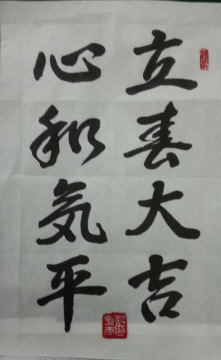 立春大吉
心和気平